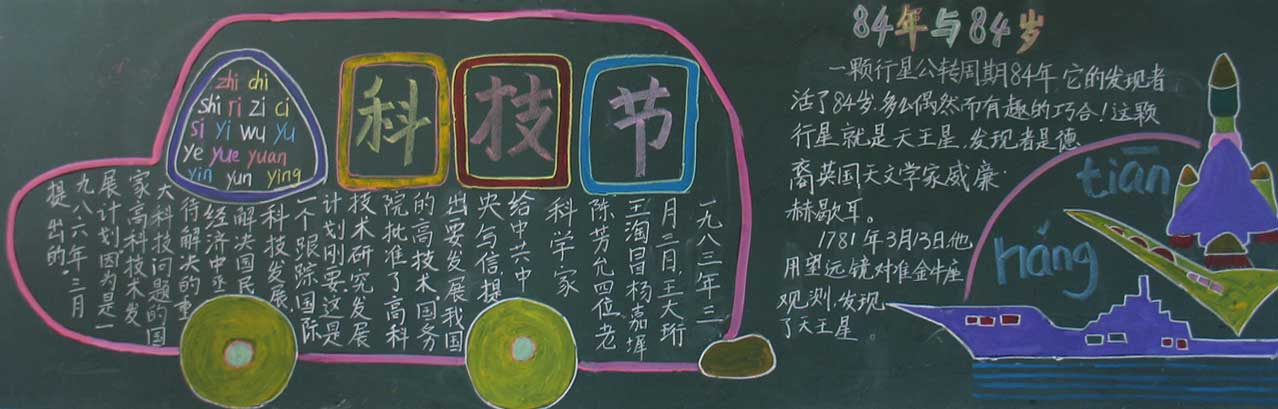 zhi chi
shi ri zi ci
si yi wu yu
ye yue yuan
yin yun ying
科技节
一九八三年三
月三日,王大珩
王淘冒杨嘉墀
陈芳允四位老
科学家
给中共中
央与信提
出要发展我国
的高技术,国务
院批准了高科
技术研究发展
计划刚要.这是
一个跟踪国际
科技发展,
解决国民
经济中亟
待解决的重
大科技问题的国
家高科技术发
展计划,因为是一
九八六年三月
提出的.
84年与84岁
一颗行星公转周期84年,它的发现者
活了84岁,多么偶然而有趣的巧合!这颗
行星就是天王星,发现者是德
裔英国天文学家威廉·
赫歇耳。
1781年3月13日他
用望远镜对准金牛座
观测,发现
了天王星。
tiān
háng